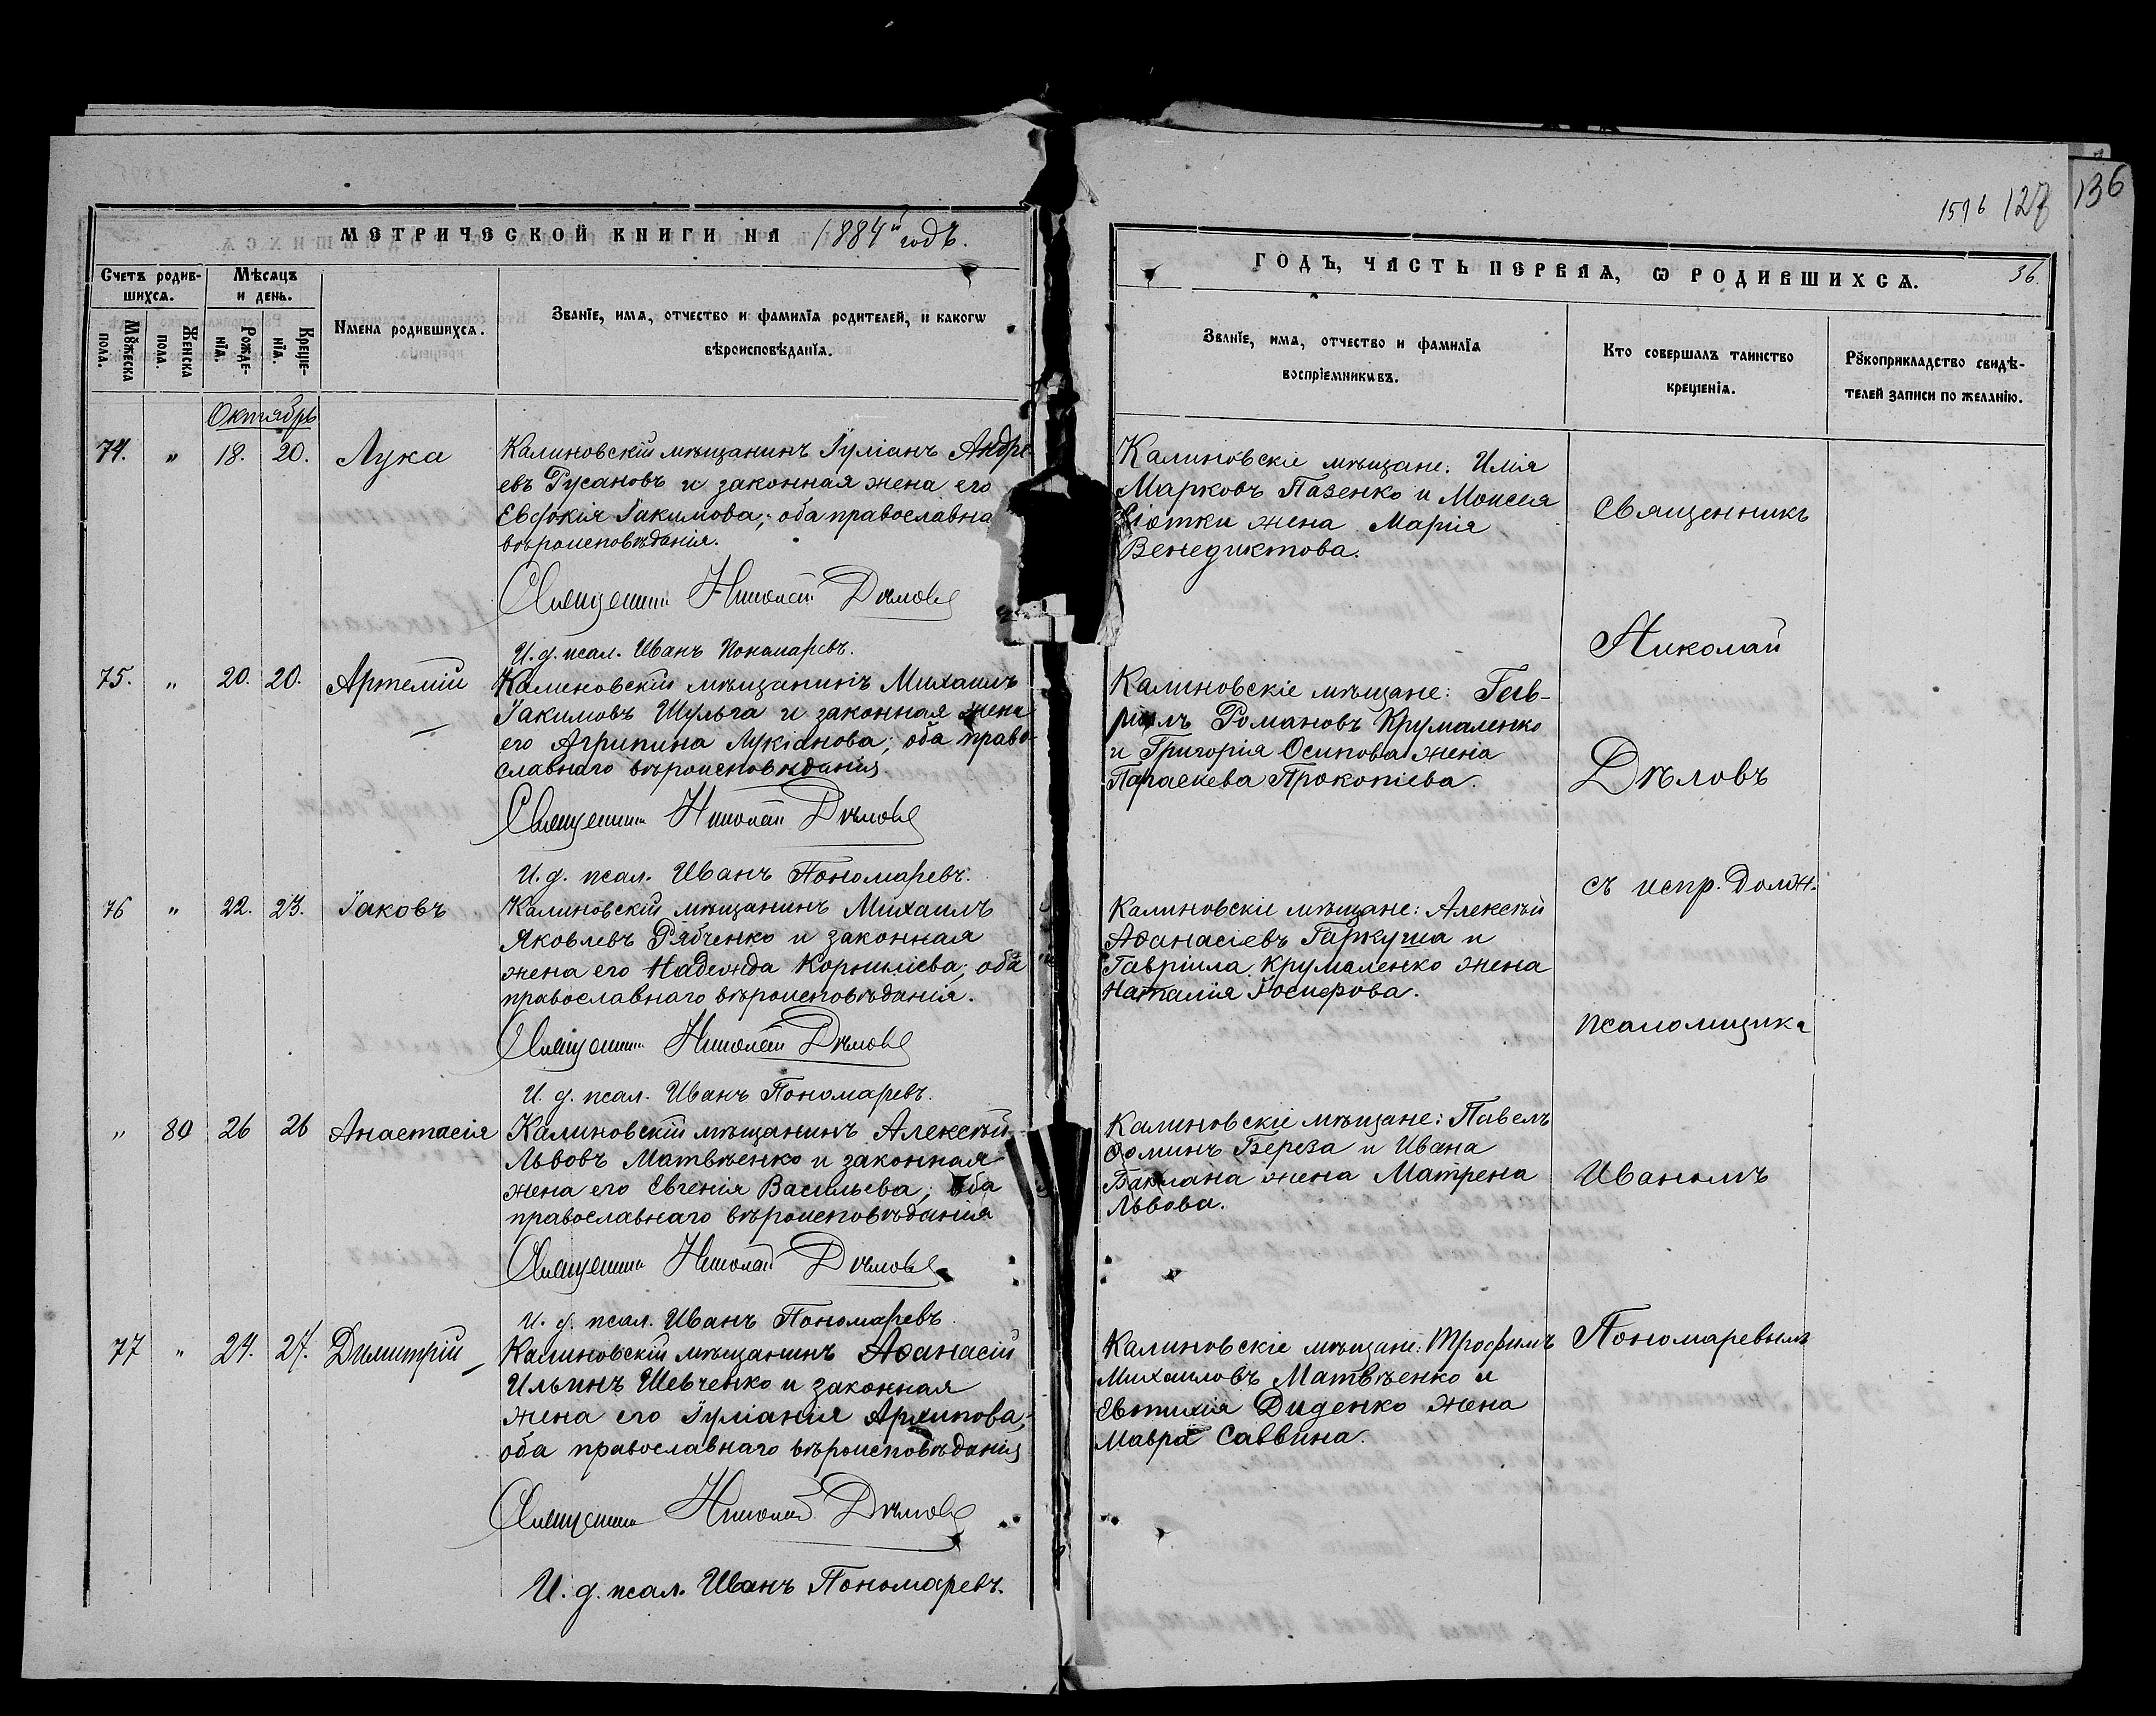 1596 127 136
МЕТРИЧЕСКОЙ КНИГИ НА 1884й годъ.
Счетъ родив-
шихсѧ.
Мѣсѧцъ
и день.
Имена родившихсѧ.
Званїе, имѧ, отчество и фамилїѧ родителей, и какогѡ
вѣроисповѣданїѧ.
Мꙋжеска
пола.
Женска
пола.
Рожде-
нїѧ.
Креще-
нїѧ.
Октябрь
74. " 18. 20. Лука
Калиновскій мѣщанинъ Іуліанъ Андре
евъ Русановъ и законная жена его
Евдокія Іакимова; оба православна
вѣроисповѣданія.
Священникъ Николай Дѣловъ
И. д. псал. Иванъ Пономаревъ.
75. " 20. 20. Артемій
Калиновскій мѣщанинъ Михаилъ
Іакимовъ Шульга и законная жена
его Агрипина Лукіанова; оба право-
славнаго вѣроисповѣданія
Священникъ Николай Дѣловъ
И. д. псал. Иванъ Пономаревъ.
76 " 22. 23. Іаковъ
Калиновскій мѣщанинъ Михаилъ
Яковлевъ Рябченко и законная
жена его Надежда Корниліева; оба
православнаго вѣроисповѣданія.
Священникъ Николай Дѣловъ
И. д. псал. Иванъ Пономаревъ.
" 80 26 26 Анастасія
Калиновскій мѣщанинъ Алексѣй
Львовъ Матвѣенко и законная
жена его Евгенія Васильева; оба
православнаго вѣроисповѣданія
Священникъ Николай Дѣловъ
И. д. псал. Иванъ Пономаревъ.
77 " 24. 27. Димитрій
Калиновскій мѣщанинъ Аѳанасій
Ильинъ Шевченко и законная
жена его Іуліанія Архипова;
оба православнаго вѣроисповѣданія
Священникъ Николай Дѣловъ
И. д. псал. Иванъ Пономаревъ.
ГОДЪ, ЧАСТЬ ПЕРВАѦ, Ѡ РОДИВШИХСѦ. 36.
Званїе, имѧ, отчество и фамилїѧ
воспрїемниковъ.
Кто совершалъ таинство
крещенїѧ.
Рꙋкоприкладство свидѣ-
телей записи по желанїю.
Калиновскіе мѣщане: Илія
Марковъ Пазенко и Моисея
жена Марія
Венедиктова.
Калиновскіе мѣщане: Гав-
ріилъ Романовъ Крумаленко
и Григорія Осипова жена
Параскева Прокопіева.
Калиновскіе мѣщане: Алексѣй
Аѳанасіевъ Гаркуша и
Гавріила Крумаленко жена
Наталія Іосифова.
Калиновскіе мѣщане: Павелъ
Ѳоминъ Береза и Ивана
Баклана жена Матрена
Львова.
Калиновскіе мѣщане: Трофимъ
Михаиловъ Матвѣенко и
Евтихія Диденко жена
Мавра Саввина.
Священникъ
Николай
Дѣловъ
съ испр. должн.
псаломщика
Иваномъ
Пономаревымъ